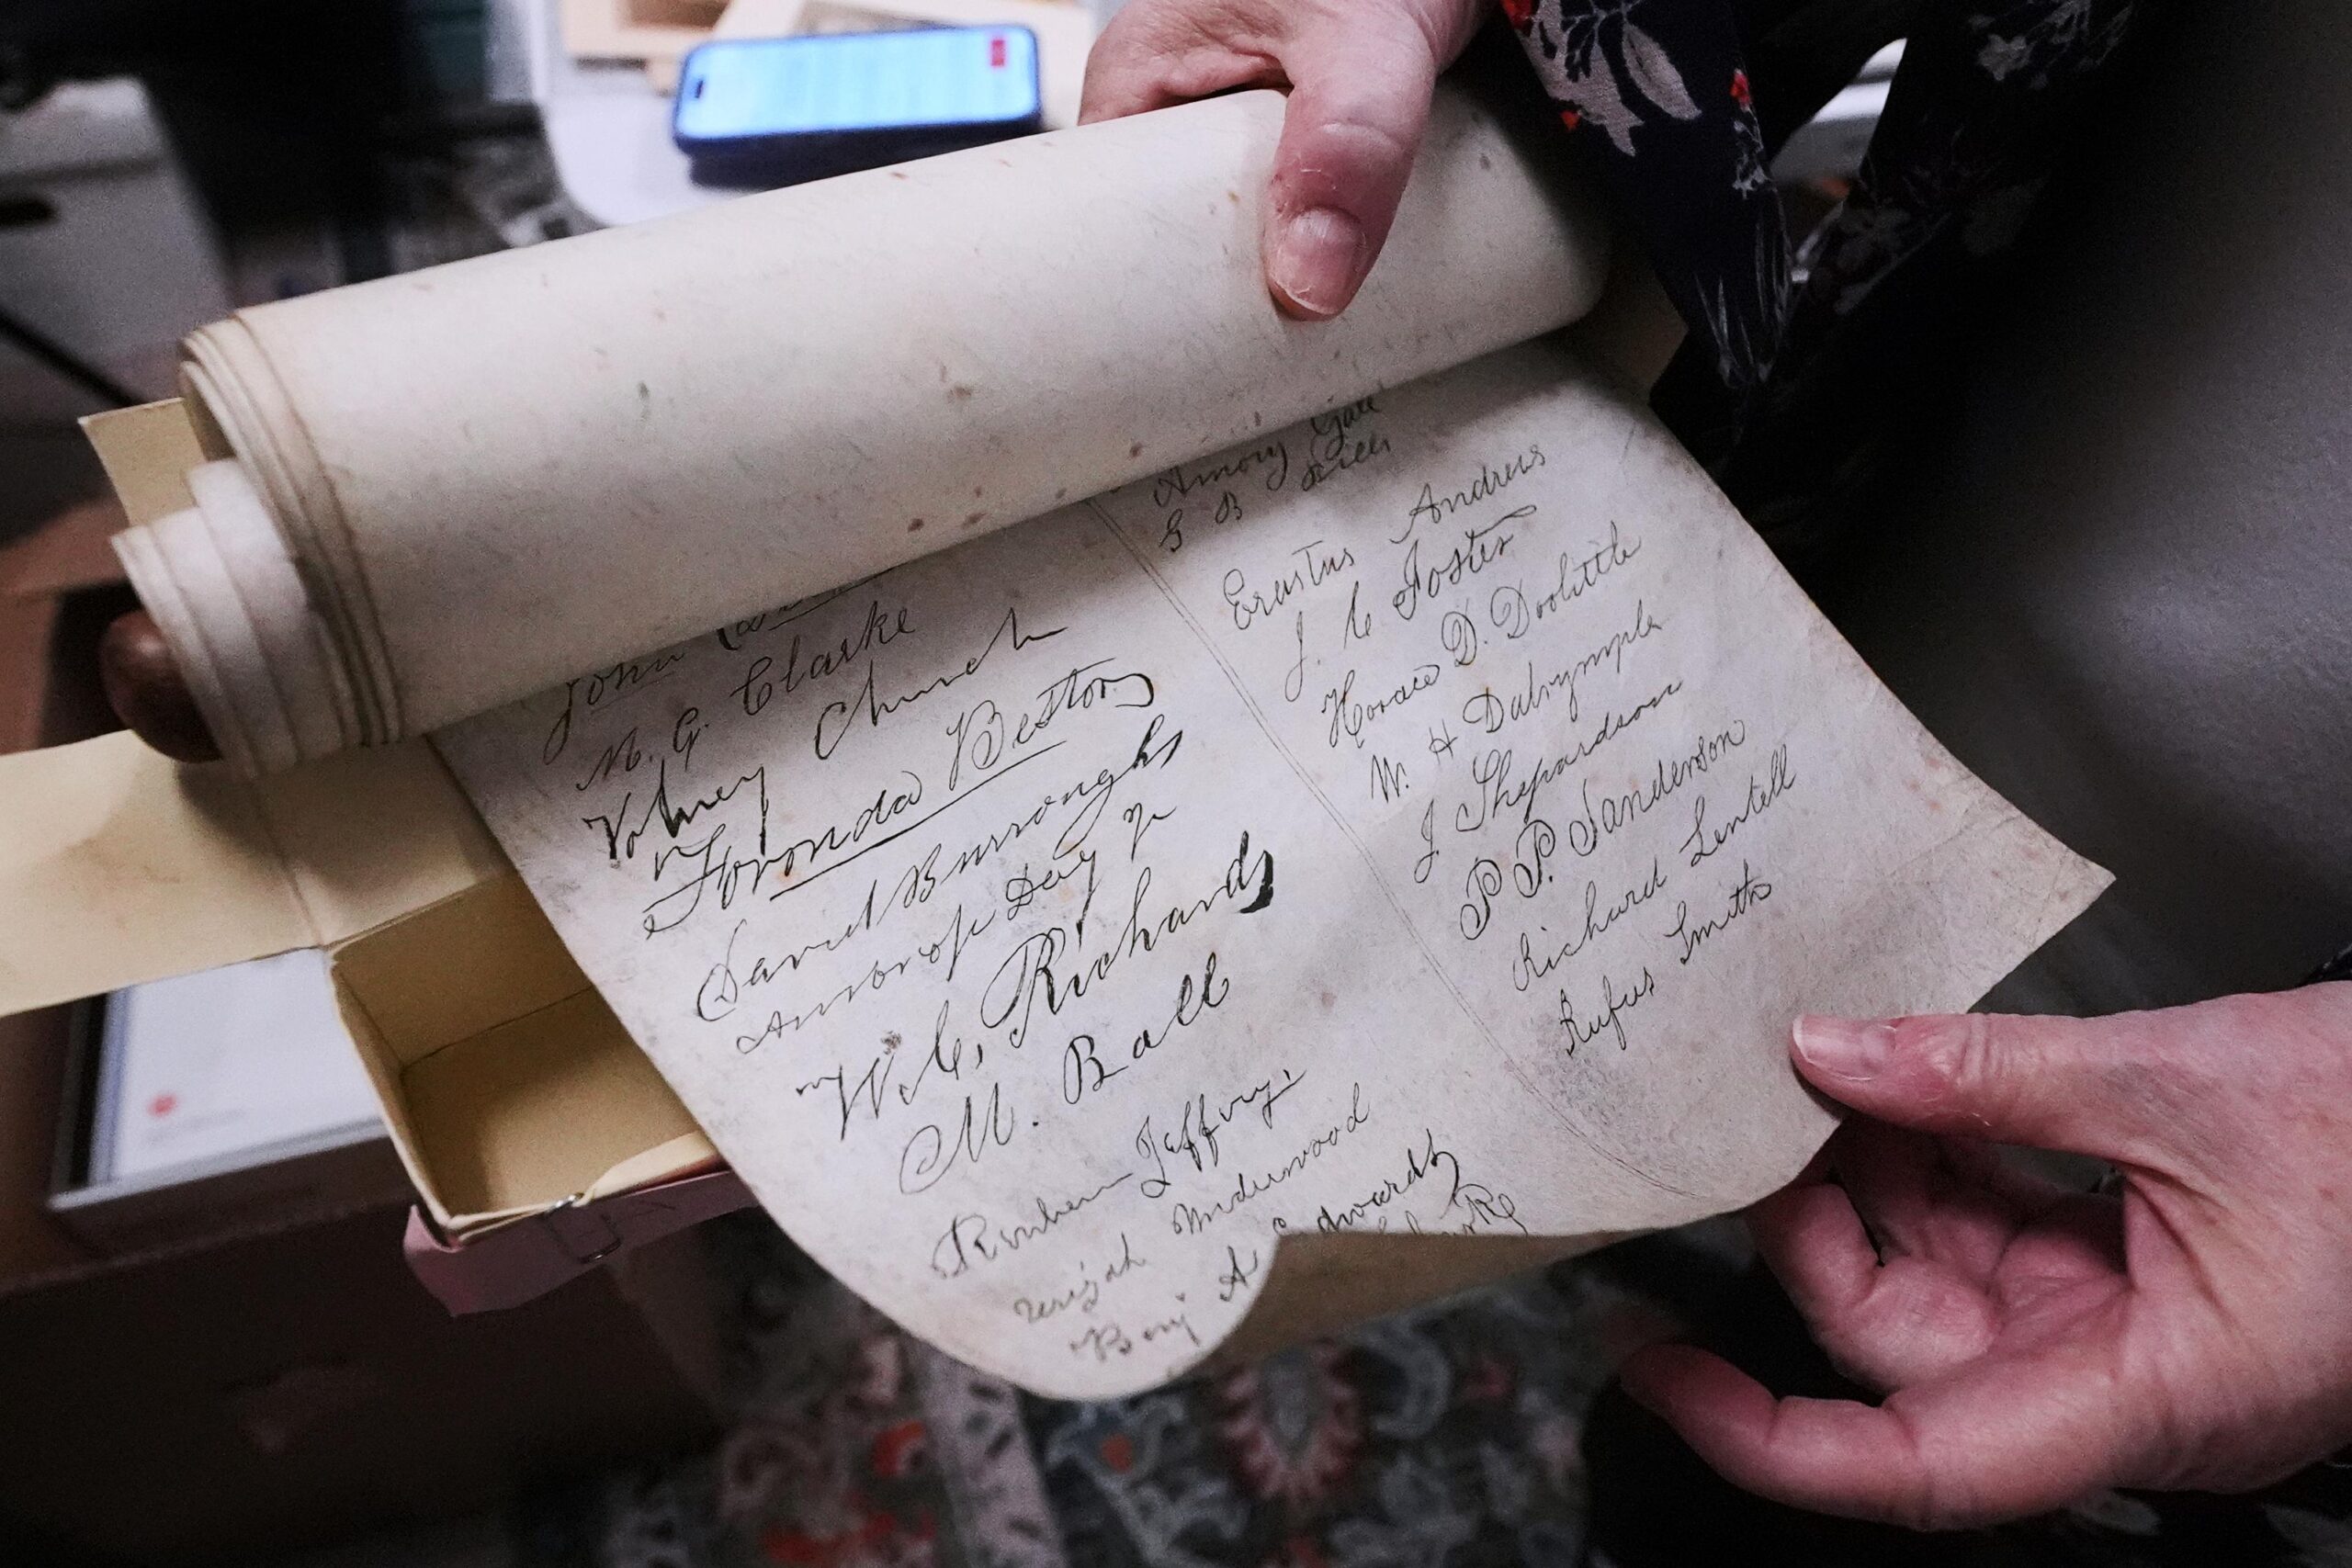 John
M. G. Clarke
Volney Church
Foronda Bestor
Daniel Burroughs
Ambrose Day Jr
Wm. C. Richards
M. Ball
Reuben Jeffrey.
Underwood
Benj A Edwards
Amory Gale
G B
Erastus Andrews
J. C Foster
Horace D. Doolittle
W. H Dalrymple
J Shepardson
P. P. Sanderson
Richard Lentell
Rufus Smith